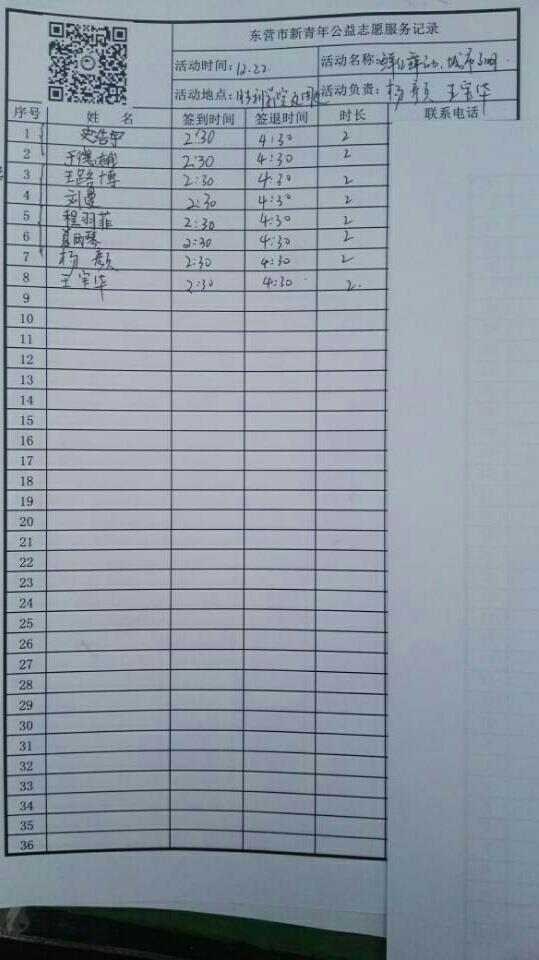 东营市新青年公益志愿服务记录
活动时间:12.22 活动名称:
活动地点:胜利学院 活动负责:杨颜 王宝华
序号 姓 名 签到时间 签退时间 时长 联系电话
1 史浩宇 2:30 4:30 2
2 于德 2:30 4:30 2
3 王路博 2:30 4:30 2
4 刘曼 2:30 4:30 2
5 程羽菲 2:30 4:30 2
6 琴 2:30 4:30 2
7 杨颜 2:30 4:30 2
8 王宝华 2:30 4:30 2
9
10
11
12
13
14
15
16
17
18
19
20
21
22
23
24
25
26
27
28
29
30
31
32
33
34
35
36